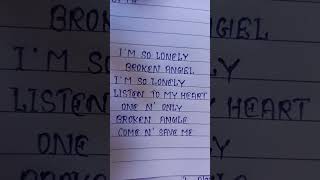 I'M SO LONELY
BROKEN ANGEL
I'M SO LONELY
LISTEN TO MY HEART
ONE N' ONLY
BROKEN ANGLE
COME N' SAVE ME